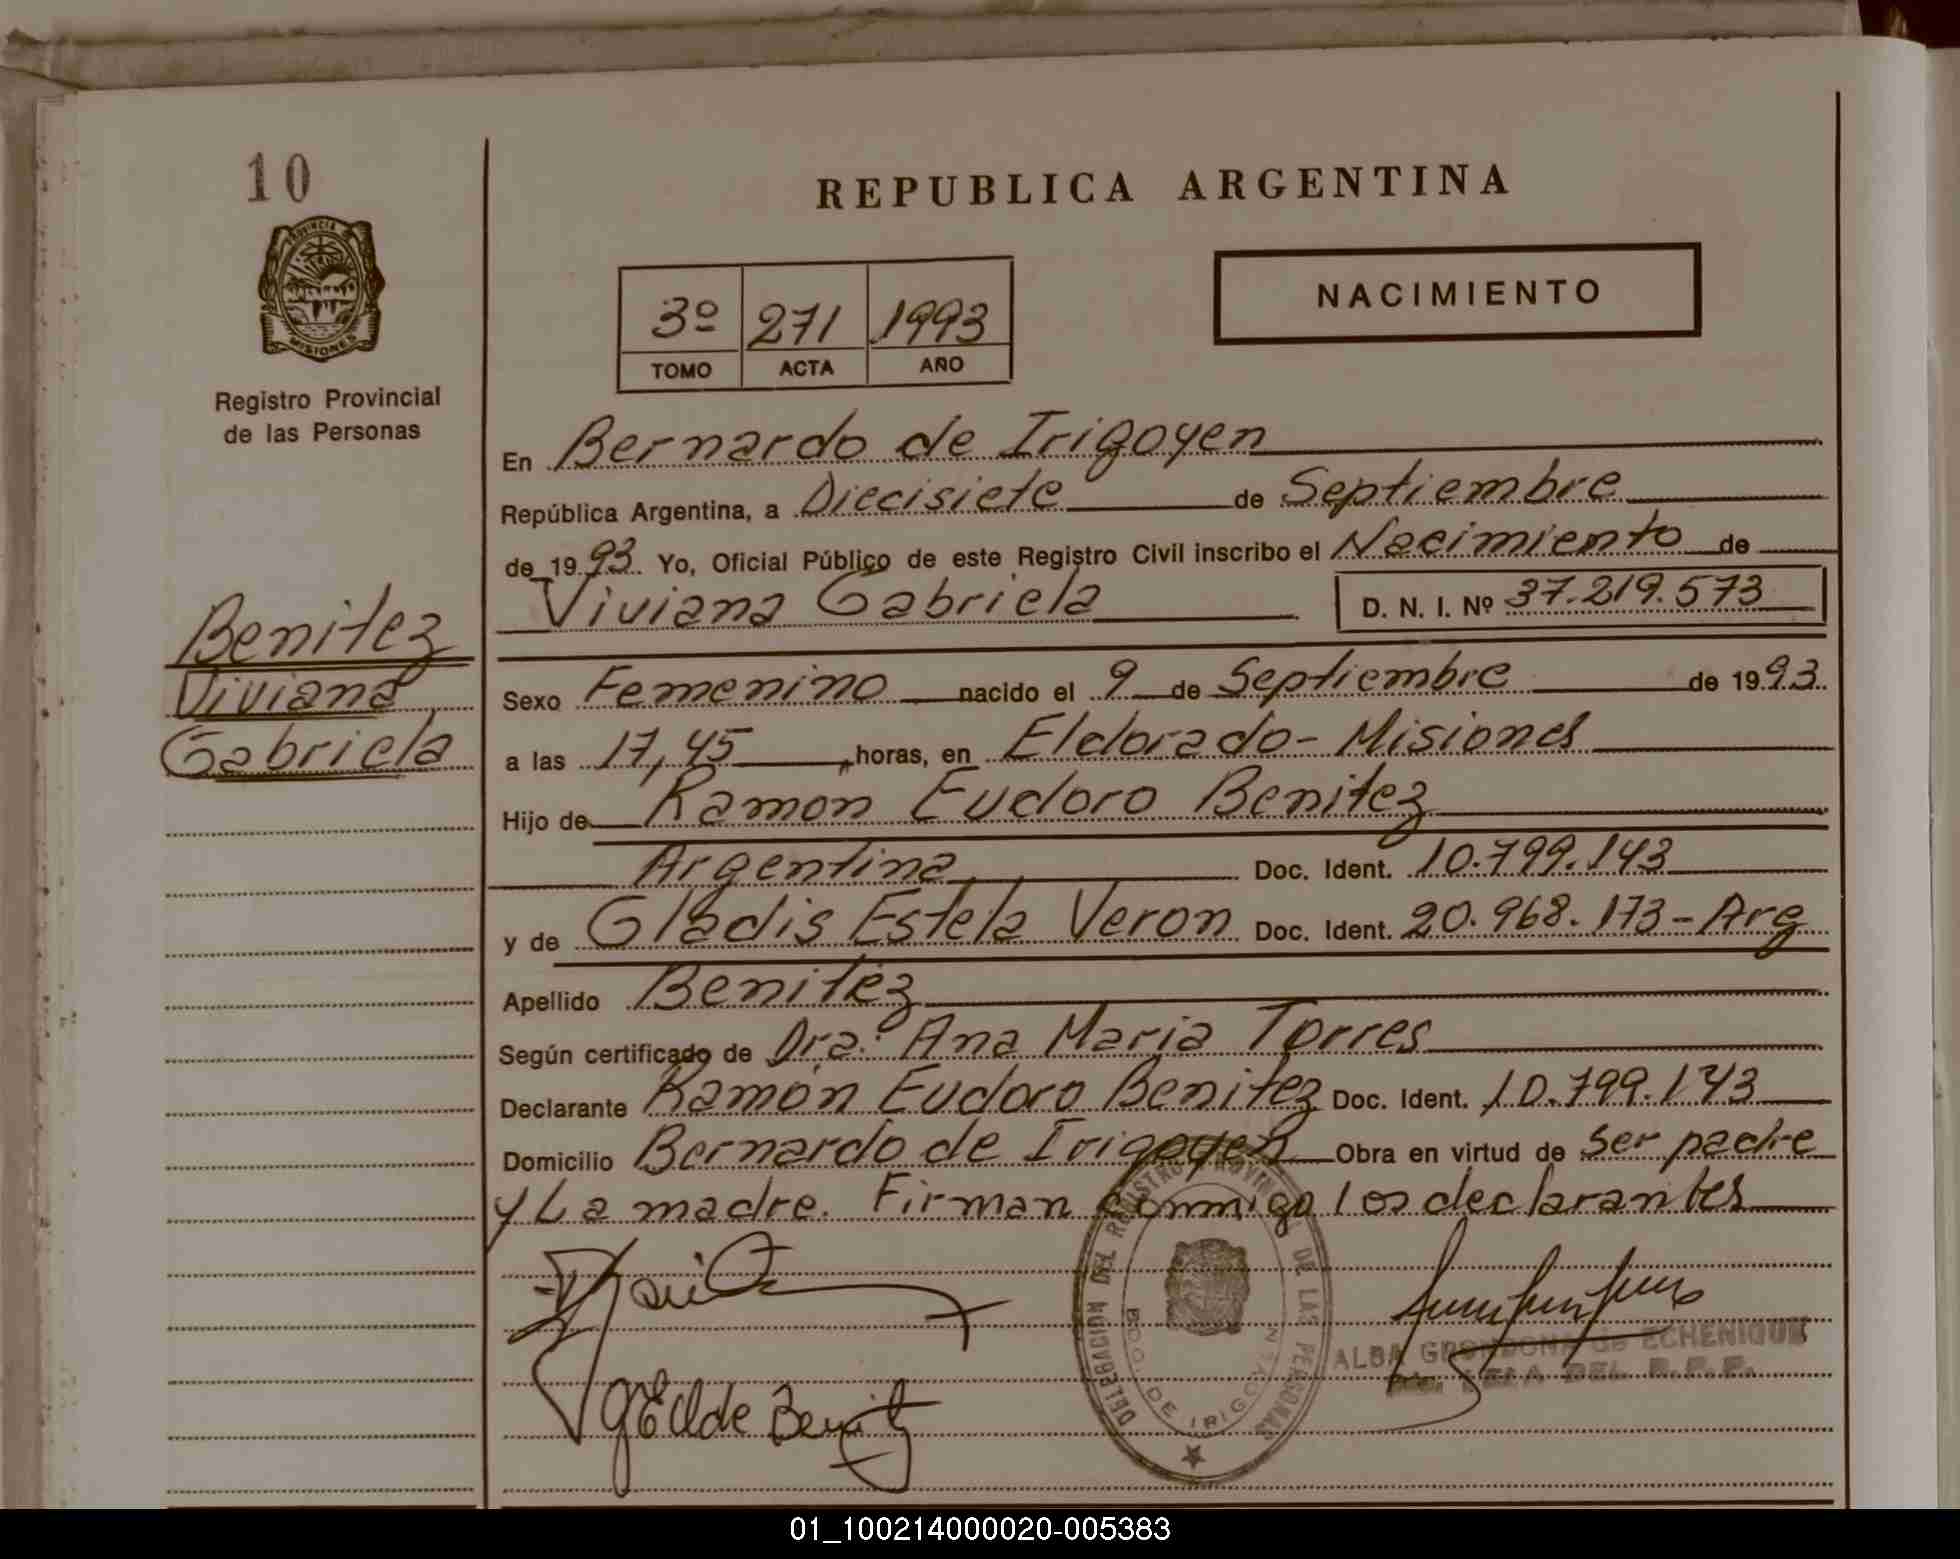 10
REPUBLICA ARGENTINA
PROVINCIA DE
MISIONES
Registro Provincial
de las Personas
3º 271 1993
TOMO ACTA AÑO
NACIMIENTO
En Bernardo de Irigoyen
República Argentina, a Diecisiete de Septiembre
de 1993 Yo, Oficial Público de este Registro Civil inscribo el Nacimiento de
Viviana Gabriela D. N. I. Nº 37.219.573
Benitez
Viviana
Gabriela
Sexo Femenino nacido el 9 de Septiembre de 1993
a las 17,45 horas, en Eldorado - Misiones
Hijo de Ramon Eudoro Benitez
Argentina Doc. Ident. 10.799.143
y de Gladis Estela Veron Doc. Ident. 20.968.173 - Arg
Apellido Benitez
Según certificado de Dra: Ana Maria Torres
Declarante Ramón Eudoro Benitez Doc. Ident. 10.799.143
Domicilio Bernardo de Irigoyen Obra en virtud de ser padre
y La madre. Firman conmigo los declarantes
DELEGACION DEL REGISTRO PROVINCIAL DE LAS PERSONAS
BDO. DE IRIGOYEN
ALBA GRONDONA de ECHENIQUE
DEL R.P.P.
de Benitez
01_100214000020-005383